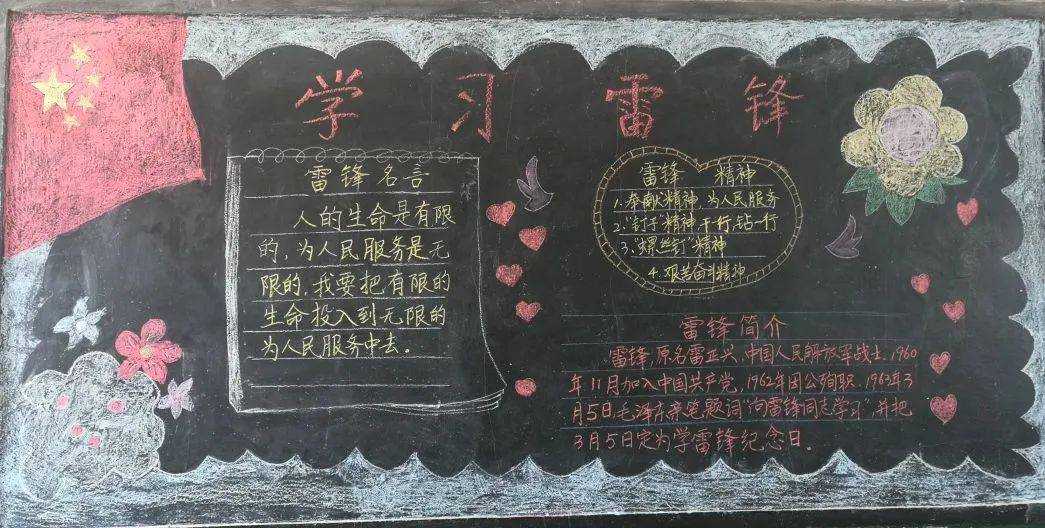 学习雷锋
雷锋名言
人的生命是有限
的，为人民服务是无
限的，我要把有限的
生命投入到无限的
为人民服务中去。
雷锋 精神
1.奉献精神 为人民服务
2.“钉子”精神 干一行，钻一行
3、“螺丝钉”精神
4.艰苦奋斗精神
雷锋简介
雷锋，原名雷正兴，中国人民解放军战士，1960
年11月加入中国共产党，1962年因公殉职，1963年3
月5日毛泽东亲笔题词“向雷锋同志学习”并把
3月5日定为学雷锋纪念日。